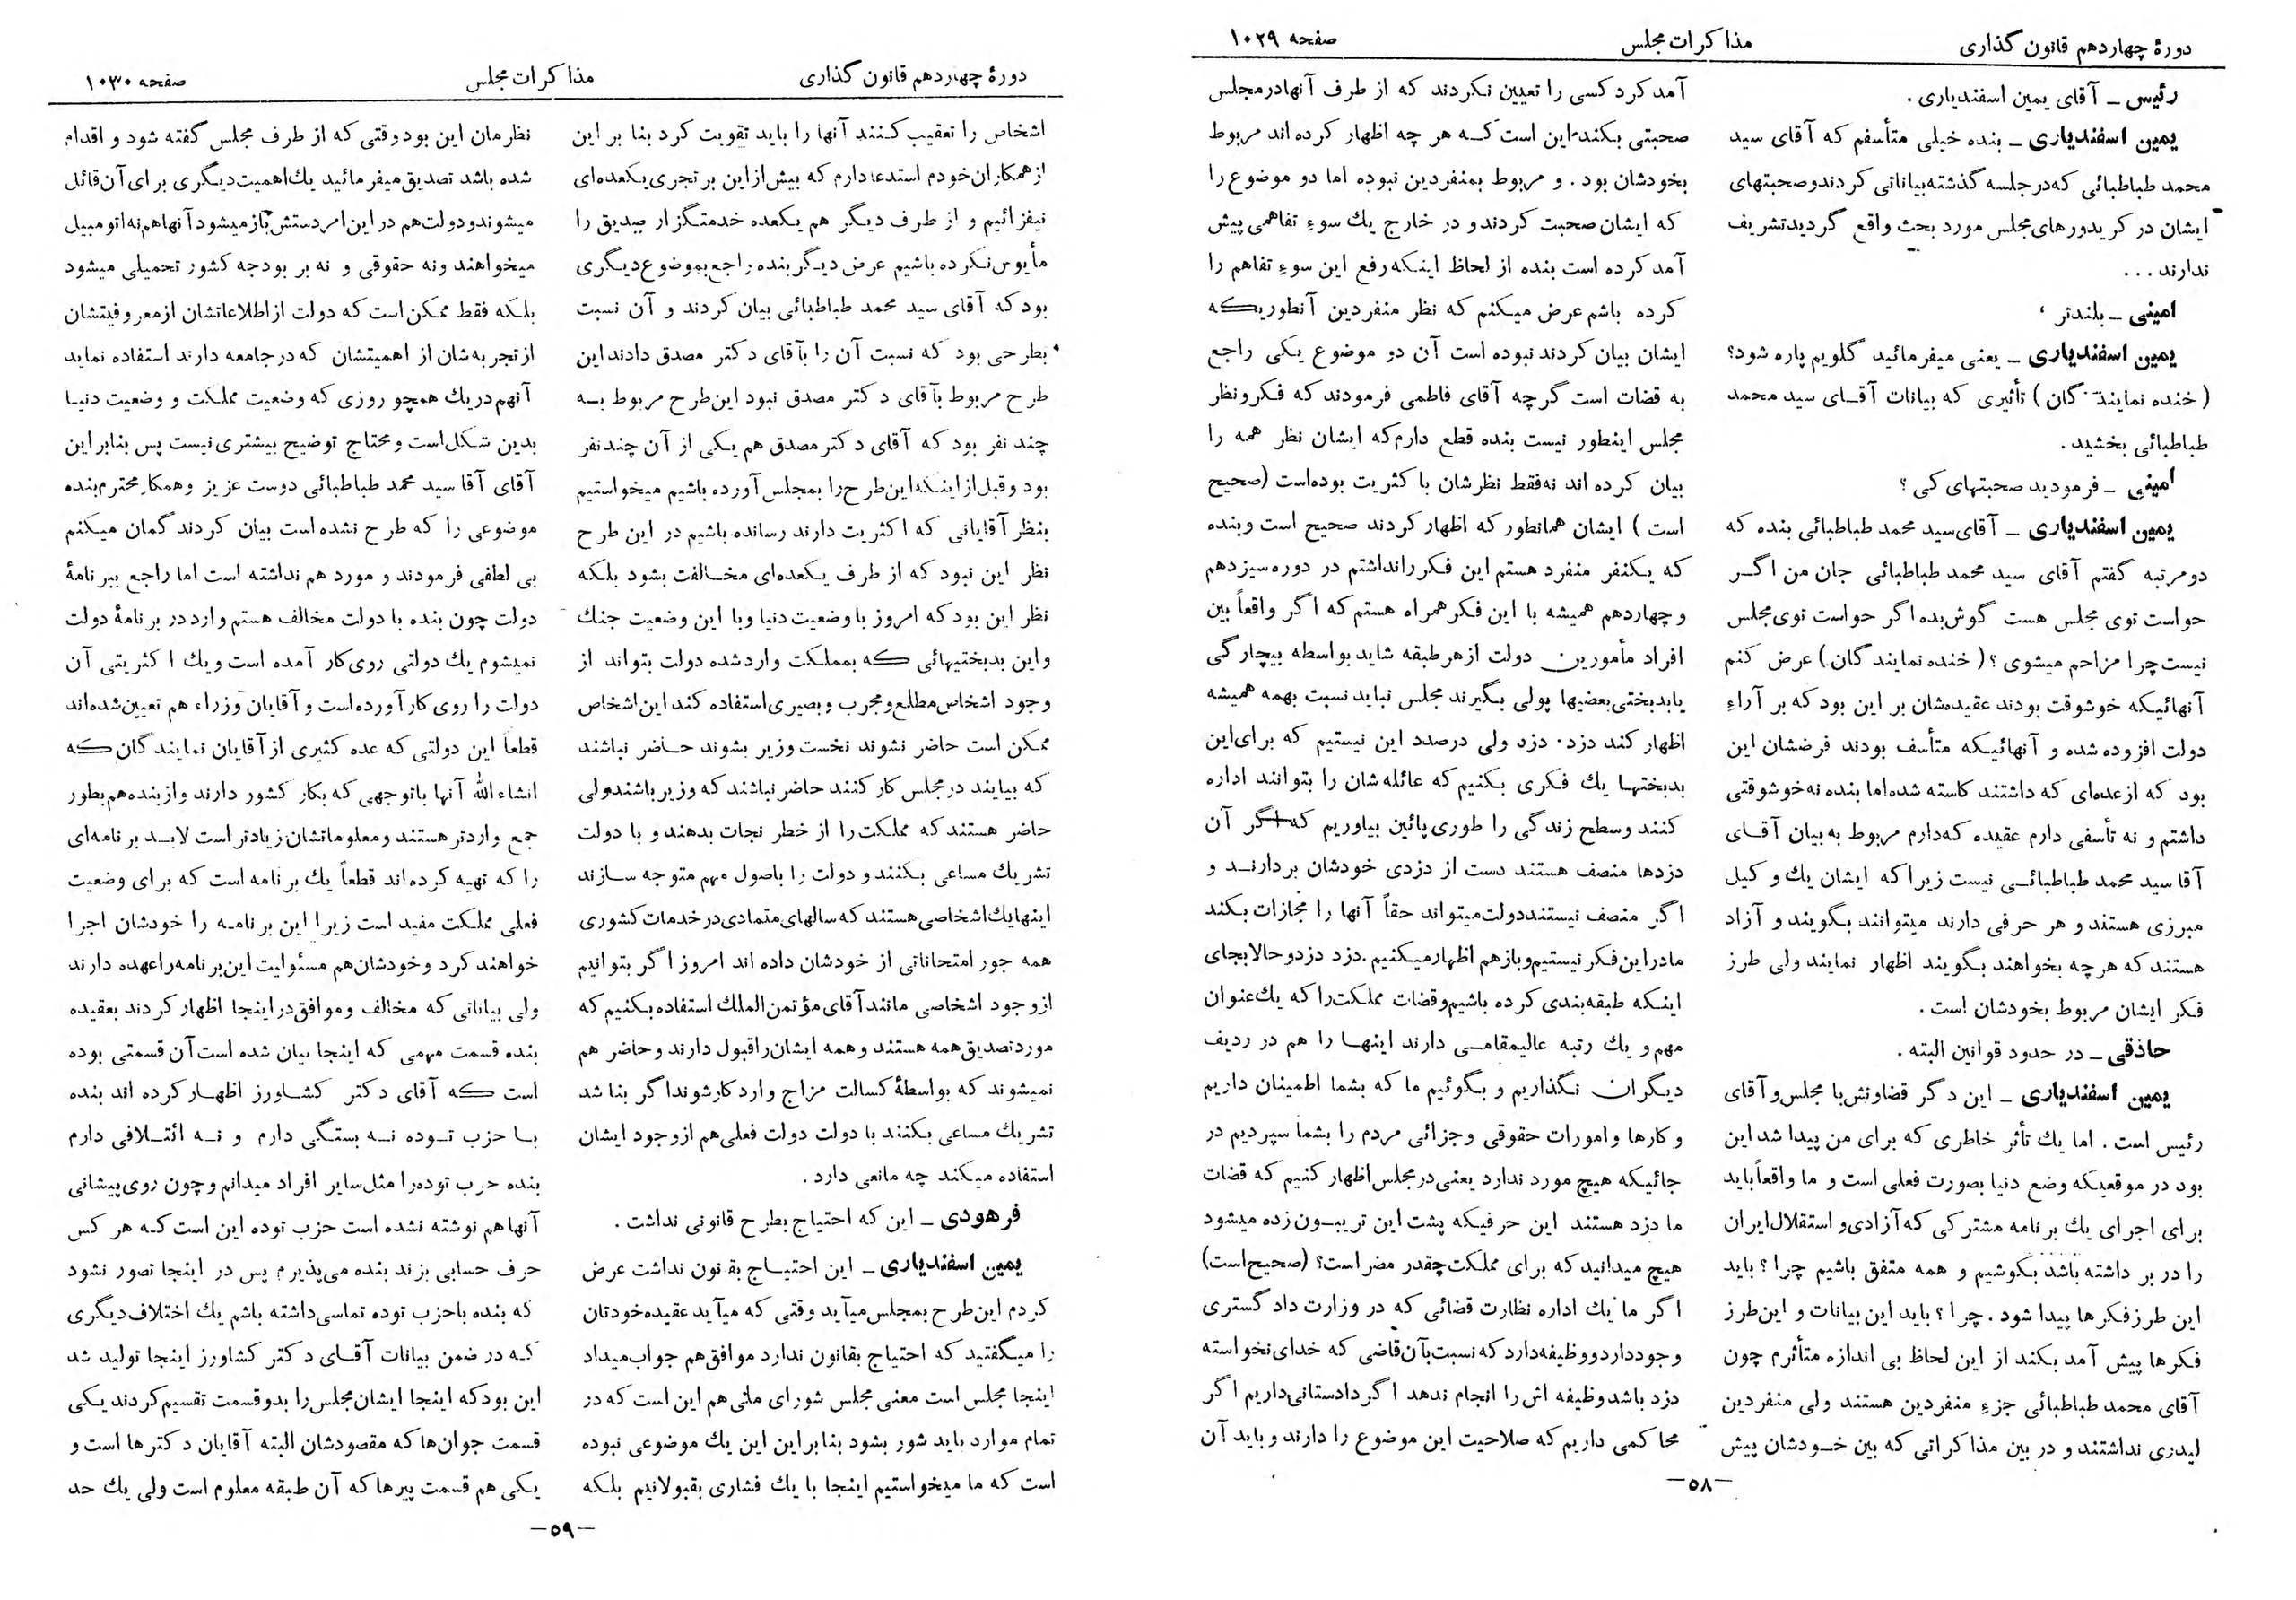 دورهٔ چهاردهم قانون گذاری
مذاکرات مجلس
صفحه ۱۰۲۹
رئیس ــ آقای یمین اسفندیاری .
یمین اسفندیاری ــ بنده خیلی متأسفم که آقای سید
محمد طباطبائی که در جلسه گذشته بیاناتی کردند و صحبتهای
ایشان در کریدورهای مجلس مورد بحث واقع گردید تشریف
ندارند ...
امینی ــ بلندتر ،
یمین اسفندیاری ــ یعنی میفرمائید گلویم پاره شود؟
( خنده نمایندگان ) تأثیری که بیانات آقــای سید محمد
طباطبائی بخشید .
امینی ــ فرمودید صحبتهای کی ؟
یمین اسفندیاری ــ آقای سید محمد طباطبائی بنده که
دو مرتبه گفتم آقای سید محمد طباطبائی جان من اگــر
حواست توی مجلس هست گوش بده اگر حواست توی مجلس
نیست چرا مزاحم میشوی ؟ ( خنده نمایندگان ) عرض کنم
آنهائیکه خوشوقت بودند عقیده‌شان بر این بود که بر آراء
دولت افزوده شده و آنهائیکه متأسف بودند فرضشان این
بود که از عده‌ای که داشتند کاسته شده اما بنده نه خوشوقتی
داشتم و نه تأسفی دارم عقیده که دارم مربوط به بیان آقــای
آقا سید محمد طباطبائــی نیست زیرا که ایشان یك وکیل
مبرزی هستند و هر حرفی دارند میتوانند بگویند و آزاد
هستند که هر چه بخواهند بگویند اظهار نمایند ولی طرز
فکر ایشان مربوط بخودشان است .
حاذقی ــ در حدود قوانین البته .
یمین اسفندیاری ــ این دگر قضاوتش با مجلس و آقای
رئیس است . اما یك تأثر خاطری که برای من پیدا شد این
بود در موقعیکه وضع دنیا بصورت فعلی است و ما واقعاً باید
برای اجرای یك برنامه مشترکی که آزادی و استقلال ایران
را در بر داشته باشد بکوشیم و همه متفق باشیم چرا ؟ باید
این طرز فکرها پیدا شود . چرا ؟ باید این بیانات و این طرز
فکرها پیش آمد بکند از این لحاظ بی اندازه متأثرم چون
آقای محمد طباطبائی جزء منفردین هستند ولی منفردین
لیدری نداشتند و در بین مذاکراتی که بین خــودشان پیش
آمد کرد کسی را تعیین نکردند که از طرف آنها در مجلس
صحبتی بکند این است کــه هر چه اظهار کرده اند مربوط
بخودشان بود . و مربوط بمنفردین نبوده اما دو موضوع را
که ایشان صحبت کردند و در خارج یك سوء تفاهمی پیش
آمد کرده است بنده از لحاظ اینکه رفع این سوء تفاهم را
کرده باشم عرض میکنم که نظر منفردین آنطوریکه
ایشان بیان کردند نبوده است آن دو موضوع یکی راجع
به قضات است گرچه آقای فاطمی فرمودند که فکر و نظر
مجلس اینطور نیست بنده قطع دارم که ایشان نظر همه را
بیان کرده اند نه فقط نظرشان با کثریت بوده است (صحیح
است ) ایشان همانطور که اظهار کردند صحیح است و بنده
که یکنفر منفرد هستم این فکر را نداشتم در دوره سیزدهم
و چهاردهم همیشه با این فکر همراه هستم که اگر واقعاً بین
افراد مأمورین دولت از هر طبقه شاید بواسطه بیچارگی
یا بدبختی بعضیها پولی بگیرند مجلس نباید نسبت بهمه همیشه
اظهار کند دزد . دزد ولی در صدد این نیستیم که برای این
بدبختها یك فکری بکنیم که عائله‌شان را بتوانند اداره
کنند و سطح زندگی را طوری پائین بیاوریم که اگر آن
دزدها منصف هستند دست از دزدی خودشان بردارنــد و
اگر منصف نیستند دولت میتواند حقاً آنها را مجازات بکند
ما در این فکر نیستیم و باز هم اظهار میکنیم . دزد دزد و حالا بجای
اینکه طبقه بندی کرده باشیم و قضات مملکت را که یك عنوان
مهم و یك رتبه عالیمقامــی دارند اینهــا را هم در ردیف
دیگران نگذاریم و بگوئیم ما که بشما اطمینان داریم
و کارها و امورات حقوقی و جزائی مردم را بشما سپردیم در
جائیکه هیچ مورد ندارد یعنی در مجلس اظهار کنیم که قضات
ما دزد هستند این حرفیکه پشت این تریبــون زده میشود
هیچ میدانید که برای مملکت چقدر مضر است؟ (صحیح است)
اگر ما یك اداره نظارت قضائی که در وزارت دادگستری
وجود دارد و وظیفه دارد که نسبت بآن قاضی که خدای نخواسته
دزد باشد وظیفه اش را انجام ندهد اگر دادستانی داریم اگر
محاکمی داریم که صلاحیت این موضوع را دارند و باید آن
ــ۵۸ــ
دورهٔ چهاردهم قانون گذاری
مذاکرات مجلس
صفحه ۱۰۳۰
اشخاص را تعقیب کــنند آنها را باید تقویت کرد بنا بر این
از همکاران خودم استدعا دارم که بیش از این بر تجری یکعده‌ای
نیفزائیم و از طرف دیگر هم یکعده خدمتگزار صدیق را
مأیوس نکرده باشیم عرض دیگر بنده راجع بموضوع دیگری
بود که آقای سید محمد طباطبائی بیان کردند و آن نسبت
بطرحی بود که نسبت آن را بآقای دکتر مصدق دادند این
طرح مربوط بآقای دکتر مصدق نبود این طرح مربوط بــه
چند نفر بود که آقای دکتر مصدق هم یکی از آن چند نفر
بود و قبل از اینکه این طرح را بمجلس آورده باشیم میخواستیم
بنظر آقایانی که اکثریت دارند رسانده باشیم در این طرح
نظر این نبود که از طرف یکعده‌ای مخــالفت بشود بلکه
نظر این بود که امروز با وضعیت دنیا و با این وضعیت جنك
و این بدبختیهائی که بمملکت وارد شده دولت بتواند از
وجود اشخاص مطلع و مجرب و بصیری استفاده کند این اشخاص
ممکن است حاضر نشوند نخست وزیر بشوند حــاضر نباشند
که بیایند در مجلس کار کنند حاضر نباشند که وزیر باشند ولی
حاضر هستند که مملکت را از خطر نجات بدهند و با دولت
تشریك مساعی بکنند و دولت را باصول مهم متوجه ســازند
اینها یك اشخاصی هستند که سالهای متمادی در خدمات کشوری
همه جور امتحاناتی از خودشان داده اند امروز اگر بتوانیم
از وجود اشخاصی مانند آقای مؤتمن الملك استفاده بکنیم که
مورد تصدیق همه هستند و همه ایشان را قبول دارند و حاضر هم
نمیشوند که بواسطهٔ کسالت مزاج وارد کار شوند اگر بنا شد
تشریك مساعی بکنند با دولت دولت فعلی هم از وجود ایشان
استفاده میکند چه مانعی دارد .
فرهودی ــ این که احتیاج بطرح قانونی نداشت .
یمین اسفندیاری ــ این احتیــاج بقانون نداشت عرض
کردم این طرح بمجلس میآید وقتی که میآید عقیده خودتان
را میگفتید که احتیاج بقانون ندارد موافق هم جواب میداد
اینجا مجلس است معنی مجلس شورای ملی هم این است که در
تمام موارد باید شور بشود بنابراین این یك موضوعی نبوده
است که ما میخواستیم اینجا با یك فشاری بقبولانیم بلکه
نظرمان این بود وقتی که از طرف مجلس گفته شود و اقدام
شده باشد تصدیق میفرمائید یك اهمیت دیگری برای آن قائل
میشوند و دولت هم در این امر دستش باز میشود آنها هم نه اتومبیل
میخواهند و نه حقوقی و نه بر بودجه کشور تحمیلی میشود
بلکه فقط ممکن است که دولت از اطلاعاتشان از معروفیتشان
از تجربه شان از اهمیتشان که در جامعه دارند استفاده نماید
آنهم در یك همچو روزی که وضعیت مملکت و وضعیت دنیــا
بدین شکل است و محتاج توضیح بیشتری نیست پس بنابراین
آقای آقا سید محمد طباطبائی دوست عزیز و همکار محترم بنده
موضوعی را که طرح نشده است بیان کردند گمان میکنم
بی لطفی فرمودند و مورد هم نداشته است اما راجع ببرنامهٔ
دولت چون بنده با دولت مخالف هستم وارد در برنامهٔ دولت
نمیشوم یك دولتی روی کار آمده است و یك اکثریتی آن
دولت را روی کار آورده است و آقایان وزراء هم تعیین شده‌اند
قطعاً این دولتی که عده کثیری از آقایان نمایندگان که
انشاءالله آنها با توجهی که بکار کشور دارند و از بنده هم بطور
جمع واردتر هستند و معلوماتشان زیادتر است لابــد برنامه‌ای
را که تهیه کرده‌اند قطعاً یك برنامه است که برای وضعیت
فعلی مملکت مفید است زیرا این برنامــه را خودشان اجرا
خواهند کرد و خودشان هم مسئولیت این برنامه را عهده دارند
ولی بیاناتی که مخالف و موافق در اینجا اظهار کردند بعقیده
بنده قسمت مهمی که اینجا بیان شده است آن قسمتی بوده
است که آقای دکتر کشــاورز اظهــار کرده اند بنده
بــا حزب تــوده نــه بستگی دارم و نــه ائتــلافی دارم
بنده حزب توده را مثل سایر افراد میدانم و چون روی پیشانی
آنها هم نوشته نشده است حزب توده این است کــه هر کس
حرف حسابی بزند بنده می‌پذیرم پس در اینجا تصور نشود
که بنده با حزب توده تماسی داشته باشم یك اختلاف دیگری
کــه در ضمن بیانات آقــای دکتر کشاورز اینجا تولید شد
این بود که اینجا ایشان مجلس را بدو قسمت تقسیم کردند یکی
قسمت جوان‌ها که مقصودشان البته آقایان دکترها است و
یکی هم قسمت پیرها که آن طبقه معلوم است ولی یك حد
ــ۵۹ــ